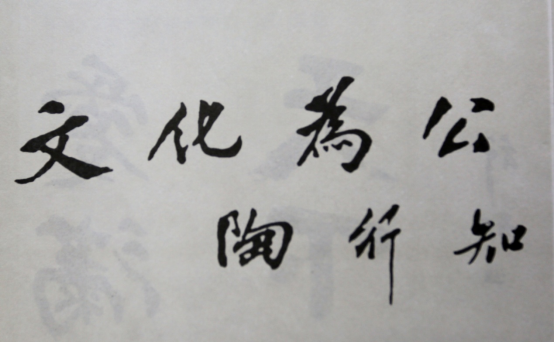 文化為公
陶行知